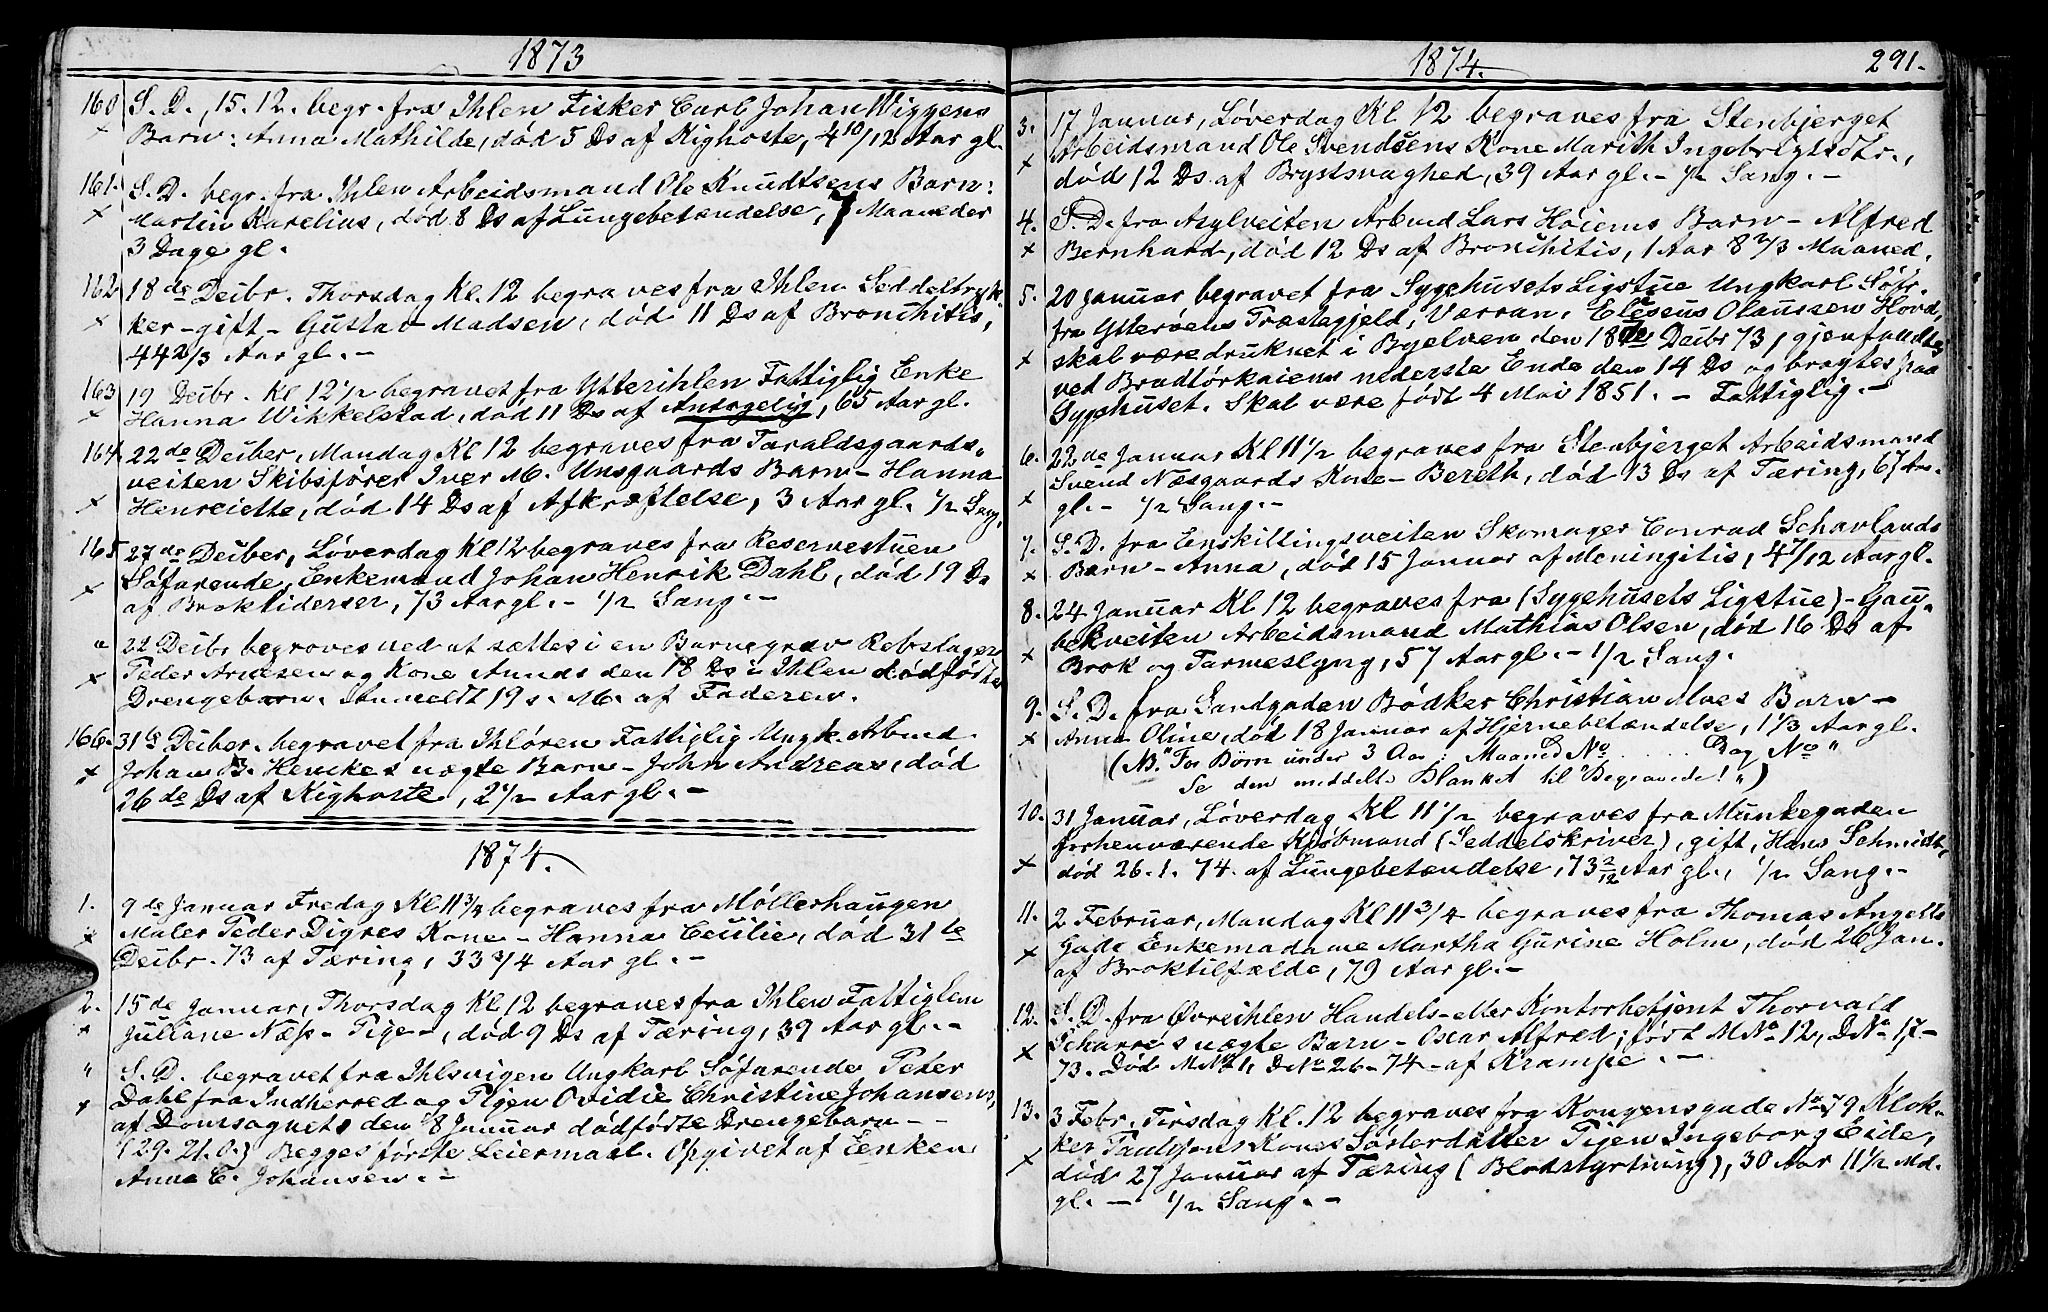 1873
160 S. D., 15. 12. begr. fra Ihlen Fisker Carl Johan Wiggens
× Barn: Anna Mathilde, død 5 Ds af Kighoste, 4 10/12 Aar gl.
161. S. D. begr. fra Ihlen Arbeidsmand Ole Knudtsens Barn:
× Martin Karelius, død 8 Ds af Lungebetændelse, 7 Maaneder
3 Dage gl.
162 18de Deibr. Thorsdag Kl. 12 begraves fra Ihlen Seddeltryk-
× ker - gift - Gustav Madsen, død 11 Ds af Bronchitis,
44 2/3 Aar gl. -
163 19 Deibr. Kl 12 1/2 begravet fra Ytterihlen Fattiglig Enke
× Hanna Wikkelstad, død 11 Ds af , 65 Aar gl.
164. 22de Deiber, Mandag Kl 12 begraves fra Taraldsgaards-
veiten Skibsfører Iver M. Unsgaards Barn - Hanna
× Henriette, død 14 Ds af Afkræftelse, 3 Aar gl. 1/2 Sang.
165. 27de Deiber, Løverdag Kl 12 begraves fra Reservestuen
× Søfarende, Enkemand Johan Henrik Dahl, død 19 Ds
af Broklidelser, 73 Aar gl. - 1/2 Sang. -
" 22 Deibr begroves ved at sættes i en Barnegrav Rebslager
× Peder Arntsen og Kone Annas den 18 Ds i Ihlen dødfødte
Drengebarn. Anmeldt 19 s. M. af Faderen.
166. 31te Deiber. begravet fra Ihløren Fattiglig Ungk. Arbmd
× Johan B. Henckes uægte Barn - John Andreas, død
26de Ds af Kighoste, 2 1/2 Aar gl. -
1874.
1. 9de Januar Fredag Kl 11 3/4 begraves fra Møllerhaugen
× Maler Peder Digres Kone - Hanna Cecilie, død 31te
Deibr. 73 af Tæring, 33 3/4 Aar gl. -
2. 15de Januar, Thorsdag Kl 12 begraves fra Ihlen Fattiglem
× Juliane Næss - Pige -, død 9 Ds af Tæring, 39 Aar gl. -
" S. D. begravet fra Ihlsvigen Ungkarl Søfarende Peter
× Dahl fra Indherred og Pigen Ovidie Christine Johansens,
af Domsognets den 8 Januar dødfødte Drengebarn - -
(29. 21. 0.) Begges første Leiermaal. Opgivet af Enken
Anne E. Johansen. -
1874. 291.
3. 17 Januar, Løverdag Kl 12 begraves fra Stenbjerget
× Arbeidsmand Ole Svendsens Kone Marith Ingebrigtsdtr.,
død 12 Ds. af Brystsvaghed, 39 Aar gl. - 1/2 Sang. -
4. S. D. fra Asylveiten Arbmd Lars Høiems Barn - Alfred
× Bernhard, død 12 Ds af Bronchitis, 1 Aar 8 2/3 Maaned.
5. 20 Januar begravet fra Sygehusets Ligstue Ungkarl Søfr.
fra Ytterøens Præstegjeld, Værran, Eliseus Olaussen Hovd,
× skal være druknet i Byelven den 18de Deibr 73, gjenfandtes
ved Bradtørkaiens nederste Ende den 14 Ds og bragtes paa
Sygehuset. Skal være født 4 Mai 1851. - Fattiglig. -
6. 22de Januar Kl 11 1/2 begraves fra Stenbjerget Arbeidsmand
× Svend Næsgaards Kone - Bereth, død 13 Ds af Tæring, 67 Aar
gl. - 1/2 Sang. -
7. S. D. fra Enskillingsveiten Skomager Conrad Schavlands
× Barn - Anna, død 15 Januar af Meningitis, 4 7/12 Aar gl.
8. 24 Januar Kl 12 begraves fra (Sygehusets Ligstue) - Gau-
bekveiten Arbeidsmand Mathias Olsen, død 16 Ds af
× Brok og Tarmeslyng, 57 Aar gl. - 1/2 Sang.
9. S. D. fra Sandgaden Bødker Christian Moes Barn -
× Anna Oline, død 18 Januar af Hjernebetændelse, 1 1/3 Aar gl.
(NB." For Børn under 3 Aar: Maaned No ..... Dag No "
Se den meddelte Blanket til "Begravede! ")
10. 31 Januar, Løverdag Kl 11 1/2 begraves fra Munkegaden
forhenværende Kjøbmand (Seddelskriver), gift, Hans Schmidt,
× død 26. 1. 74. af Lungebetændelse, 73 2/12 Aar gl., 1/2 Sang. -
11. 2 Februar, Mandag Kl 11 3/4 begraves fra Thomas Angells
× Gade Enkemadame Martha Gurine Holm, død 26 Jan.
af Broktilfælde, 79 Aar gl. -
12. S. D. fra Øvreihlen Handels- eller Kontorbetjent Thorvald
× Scharres uægte Barn - Oscar Alfred; født M No 12, D No 17 -
73. Død M No 1, D No 26 - 74 - af Krampe. -
13. 3 Febr. Tirsdag Kl. 12 begraves fra Kongensgade No 79 Klok-
ker Paulsens Kones Søsterdatter Pigen Ingeborg Eide,
× død 27 Januar af Tæring (Blodstyrtning), 30 Aar 11 1/2 Md.
gl. - 1/2 Sang. -